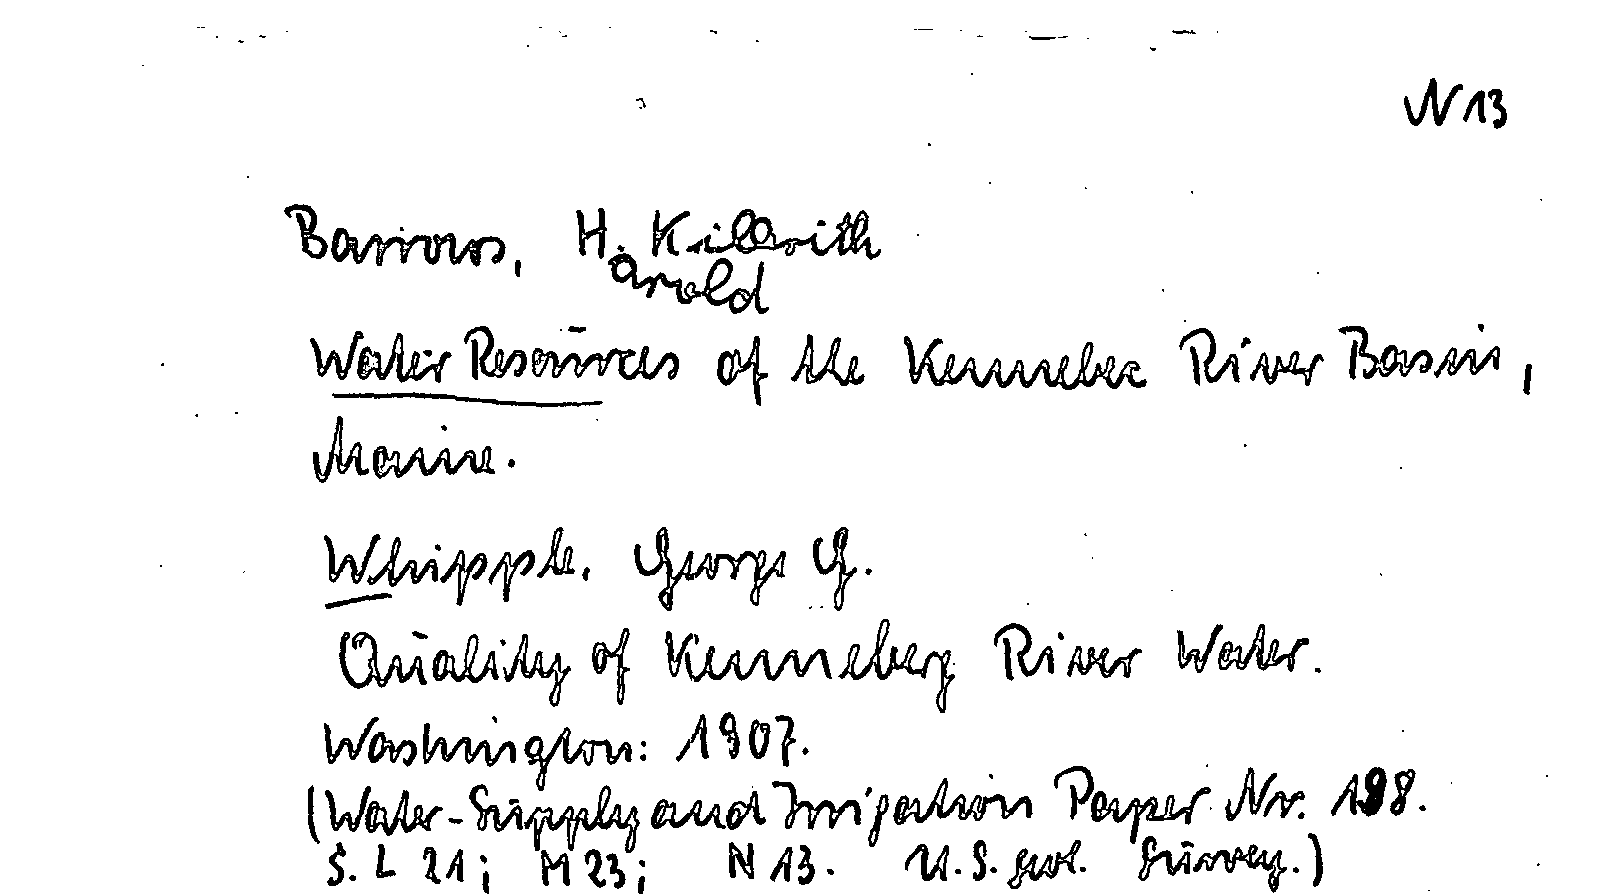 N 13
Barrows, H. K
arold
Water Resources of the Kennebec River Basin,
Maine.
Whipple, George G.
Quality of Kenneberg River Water.
Washington: 1907.
(Water-Supply and Irrigation Paper Nr. 198.
S. L 21; M 23; N 13. U.S. geol. Survey.)